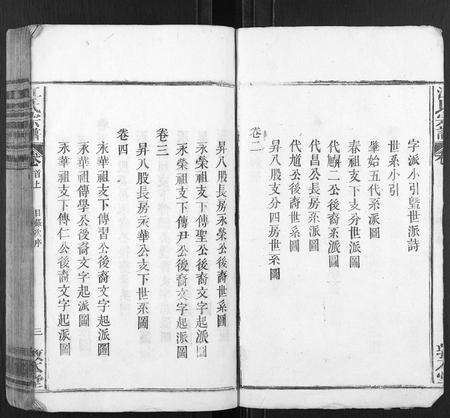 字派小引暨世派詩
世系小引
肇始五代系派圖
春祖支下支分世派圖
代麟二公後裔系派圖
代昌公長房系派圖
代尨公後裔世系圖
昇八股支分四房世系圖
卷二
昇八股長房永榮公支下世系圖
永榮祖支下傳聖公後裔文字起派圖
永榮祖支下傳尹公後裔文字起派圖
卷三
昇八股長房永華公支下世系圖
卷四
永華祖支下傳習公後裔文字起派圖
永華祖支下傳學公後裔文字起派圖
永華祖支下傳仁公後裔文字起派圖
江氏宗譜
卷首上
三